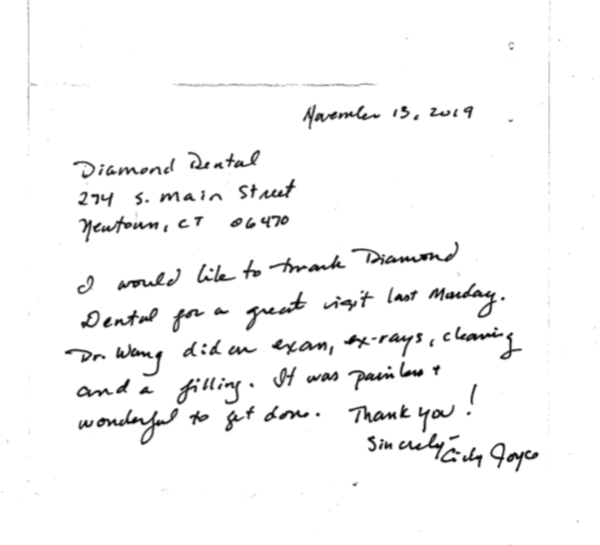 November 13, 2019
Diamond Dental
274 S. Main Street
Newtown, CT 06470
I would like to thank Diamond
Dental for a great visit last Monday.
Dr. Wang did an exam, ex-rays, cleaning
and a filling. It was painless +
wonderful to get done. Thank you!
Sincerely-
Joyce